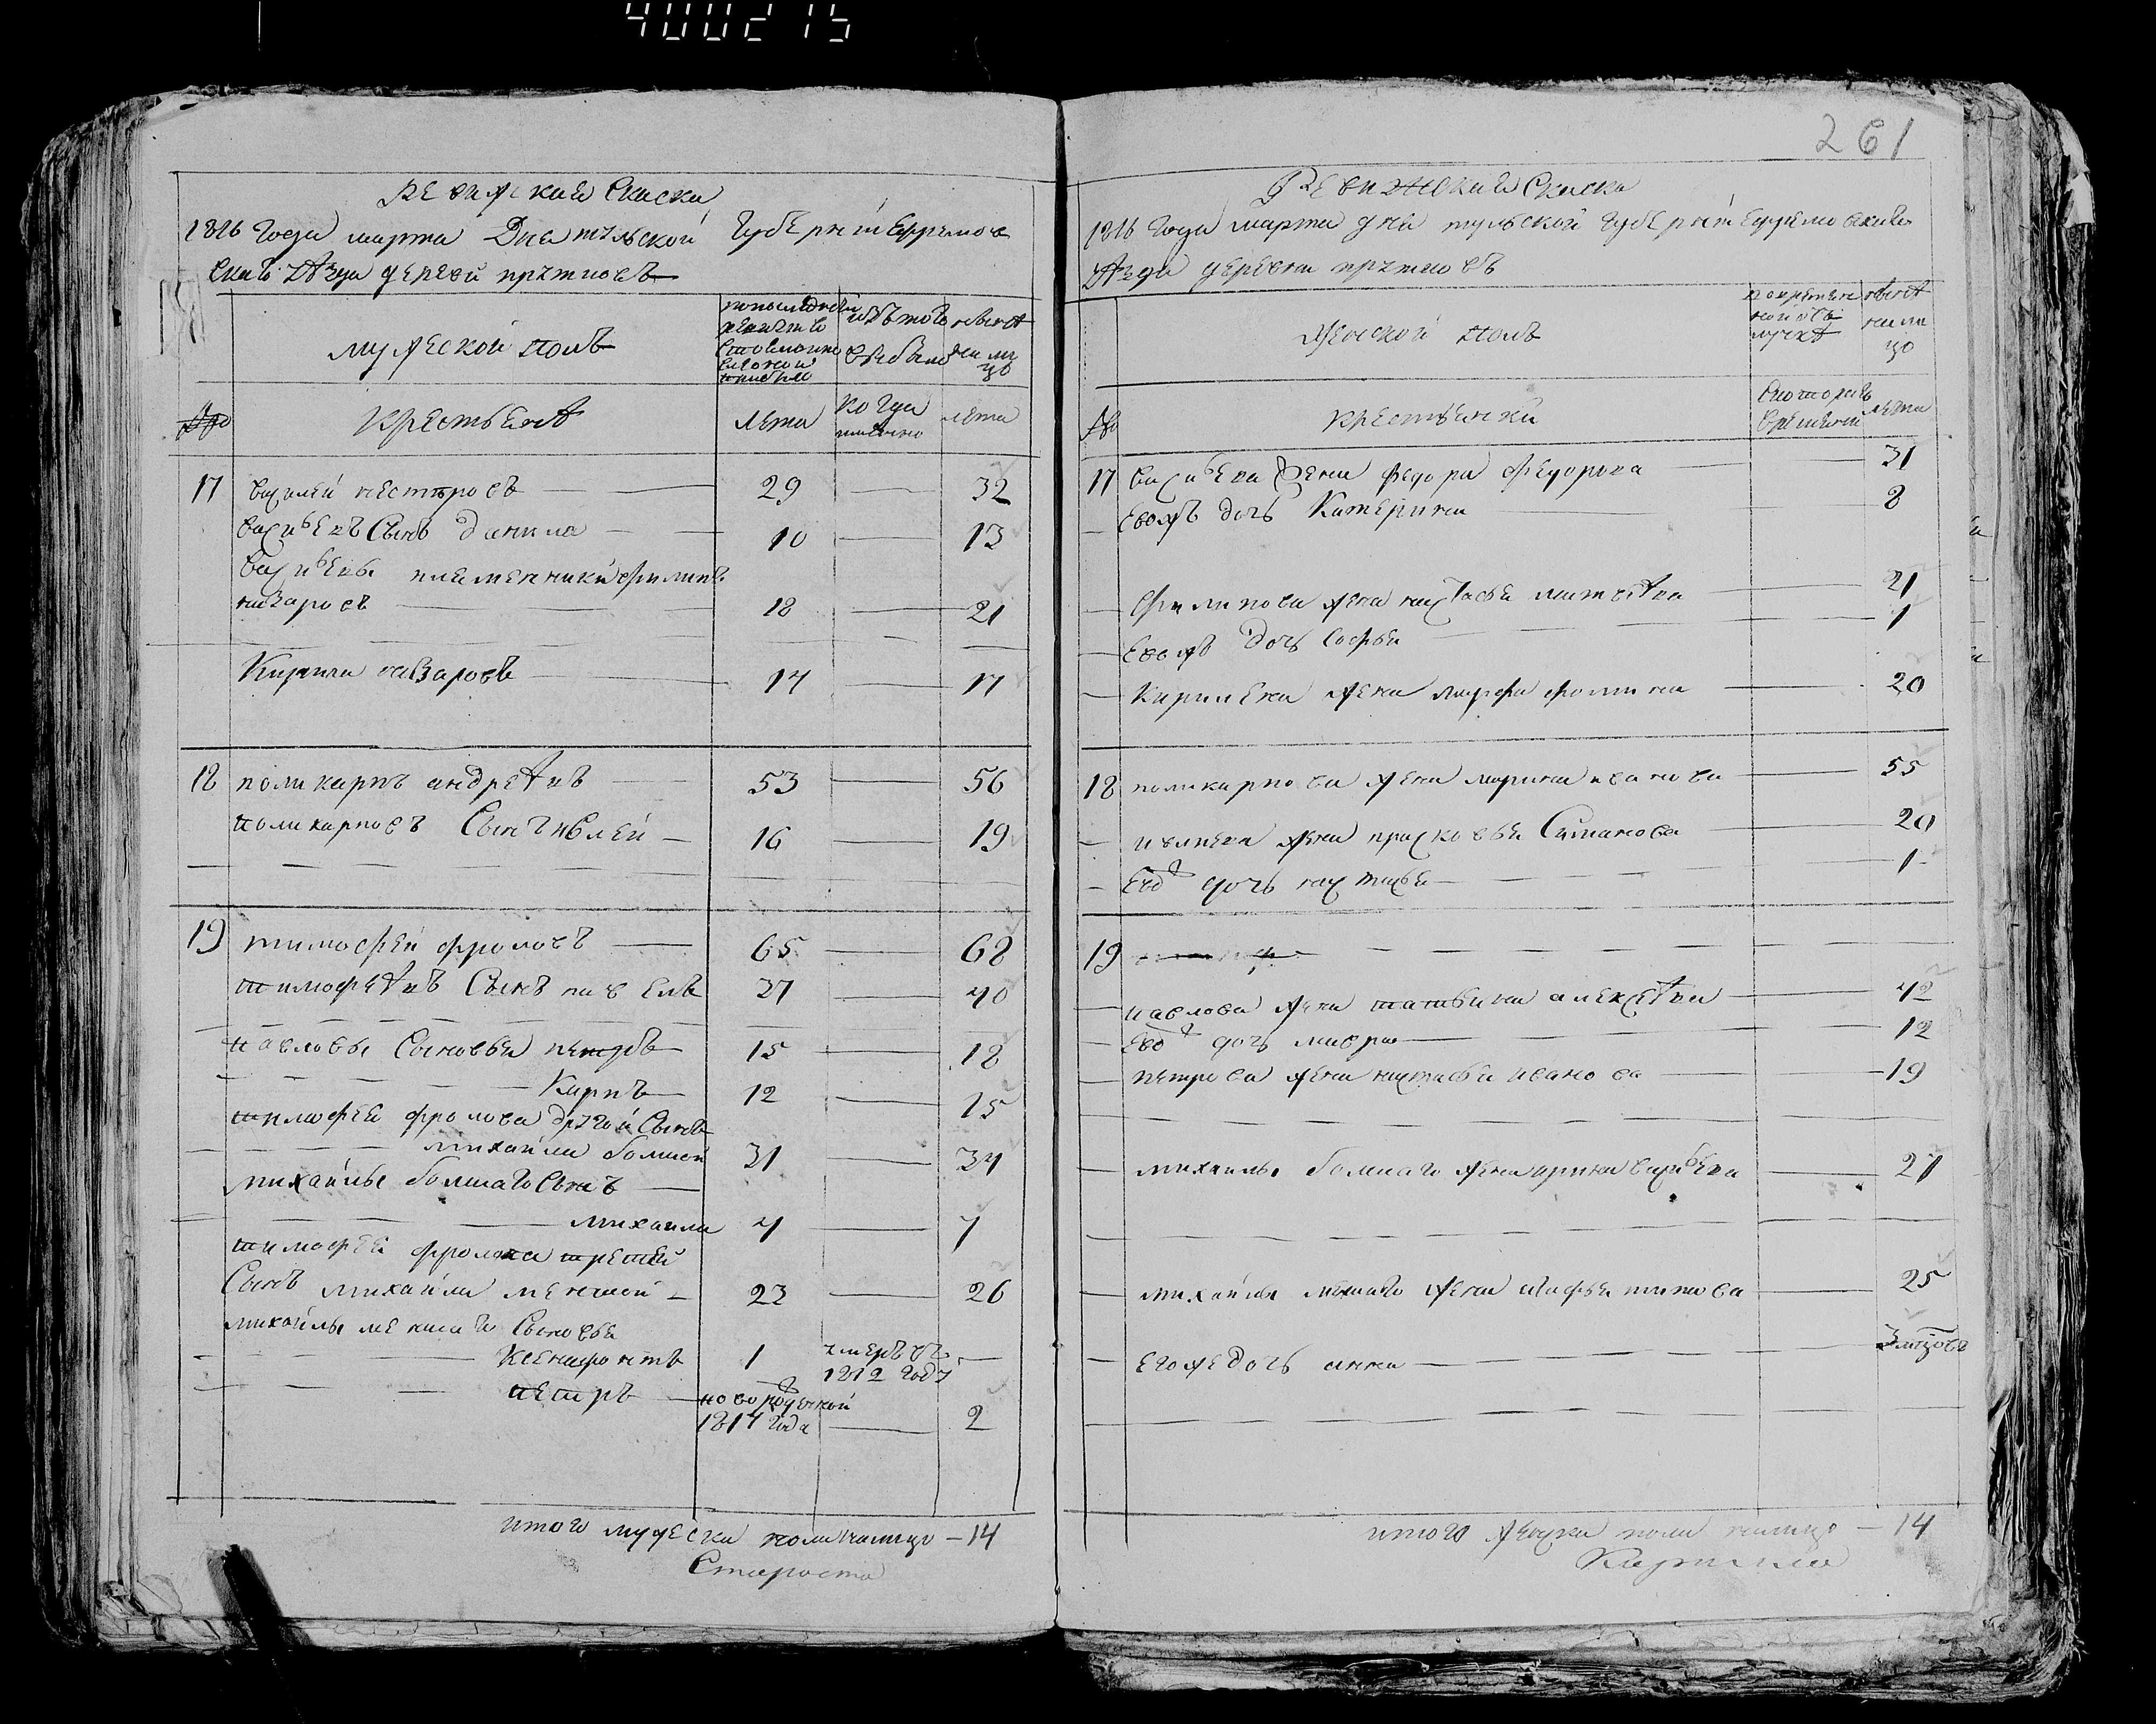 400215
261
Ревижская Скаска
1816 Года марта Дня тульской Губернии Ефремов
скаго уѣзда деревни прутковъ
мужеской полъ
по последней ревизіи состояло
изъ того выбыло
ныне на лицо
№
крестьянѣ
лета
когда именно
лета
17 василей нестеровъ — 29 — 32
васильевъ Сынъ данила — 10 — 13
васильевы племенники филипъ
назаровъ — 18 — 21
Кирила назаровъ — 14 — 17
18 поликарпъ андреѣвъ — 53 — 56
поликарповъ Сынъ — 16 — 19
19 тимофей фроловъ — 65 — 68
тимофеѣвъ Сынъ павелъ 37 — 40
павловы Сыновья петръ 15 — 18
Карпъ 12 — 15
тимофея фролова другой Сынъ
михайла болшой 31 — 34
михайлы болшаго Сынъ —
михайла 4 — 7
тимофея фролова третей
Сынъ михайла меншой — 23 — 26
михайлы меншаго Сыновья
Ксенофонтъ 1 умеръ въ 1812 году —
петръ — новорожденной
1814 года — 2
итого мужеска пола налицо — 14
Староста
Ревижская Скаска
1816 Года марта дня тульской губернии Ефремовскаго
уѣзда деревни прутковъ
женской полъ
ныне на лицо
№
крестьянки
времени
лета
17 васильева жена федора федорова — 31
— Евожъ дочь Катерина — 8
— филипова жена настасья матвеѣва — 21
— Евожъ дочь Софья — 1
— Кирилева жена марфа фомина — 20
18 поликарпова жена марина иванова — 55
— жена прасковья Симанова — 20
— дочь настасья — 1
19
— павлова жена татьяна алексеѣва — 42
— дочь мавра — 12
— петрова жена настасья иванова — 19
— михайлы болшаго жена ирина васильева — 27
— михайлы меншаго жена агафья титова — 25
— егожедочь анна — 3 мцовъ
итого женска пола налицо — 14
Кирила